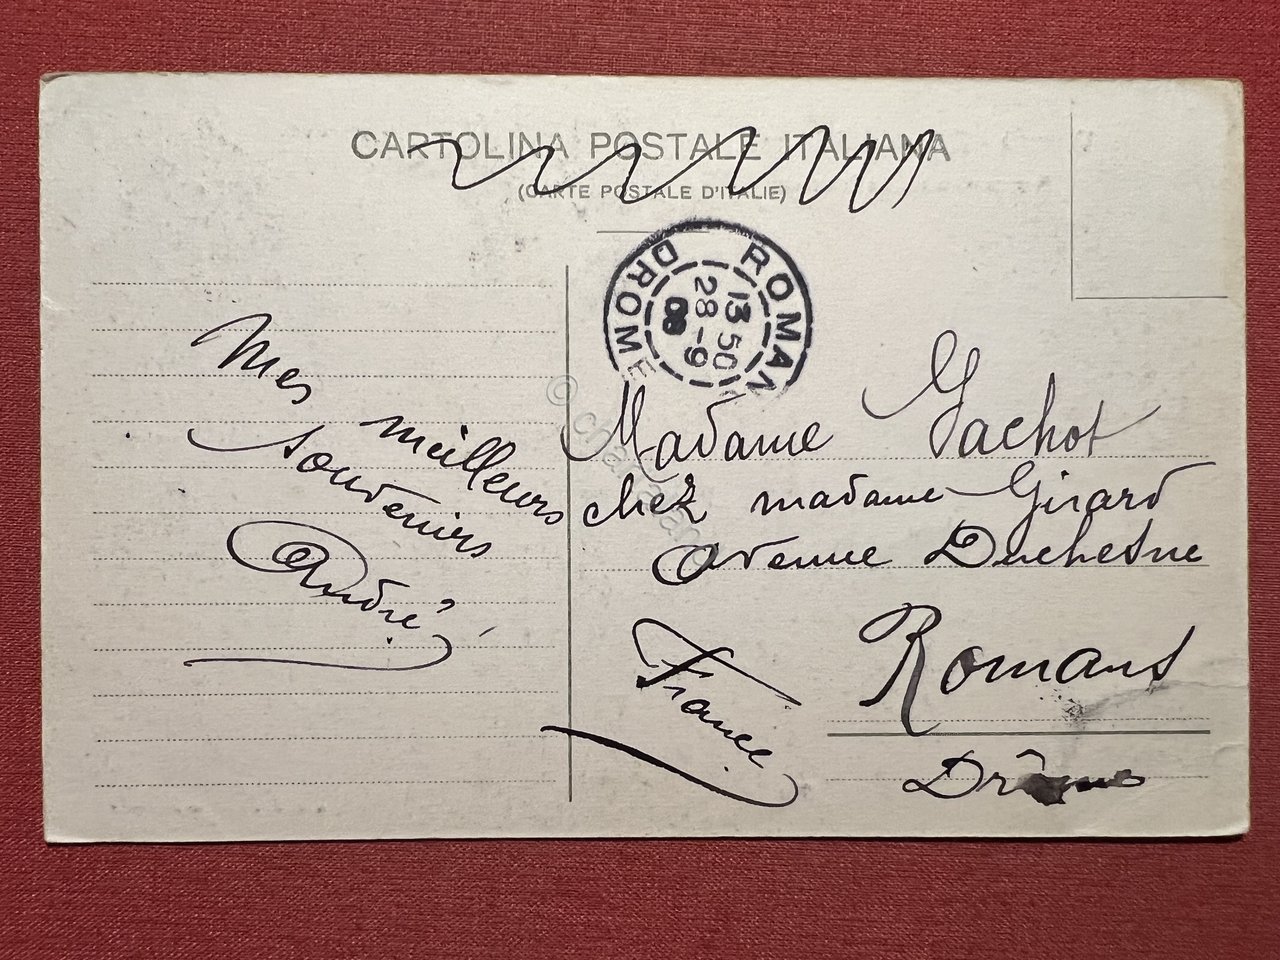 CARTOLINA POSTALE ITALIANA
(CARTE POSTALE D'ITALIE)
ROMANS
DROME
13 50
28 - 9
08
Mes meilleurs
souvenirs
André
Madame Gachot
chez madame Girard
avenue Duchesne
Romans
Drôme
France